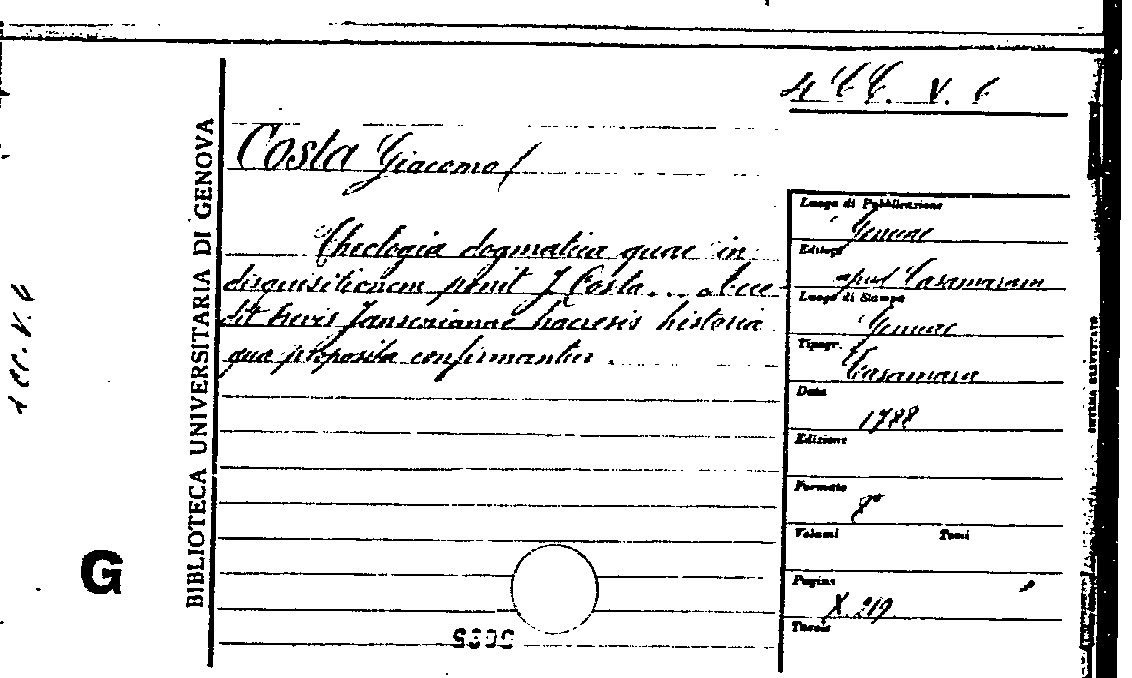 4 CC. V. 6
Costa Giacomo
Theologia dogmatica quae in
disquisitionem ponit J. Costa... Acce
dit brevis Jansenianae haeresis historia
qua proposita confirmantur.
BIBLIOTECA UNIVERSITARIA DI GENOVA
G
Luogo di Pubblicazione
Genuae
Editore
apud Casamaram
Luogo di Stampa
Genuae
Tipogr.
Casamara
Data
1788
Edizione
Formato
8°
Volumi Tomi
Pagine
X. 219
Tavole